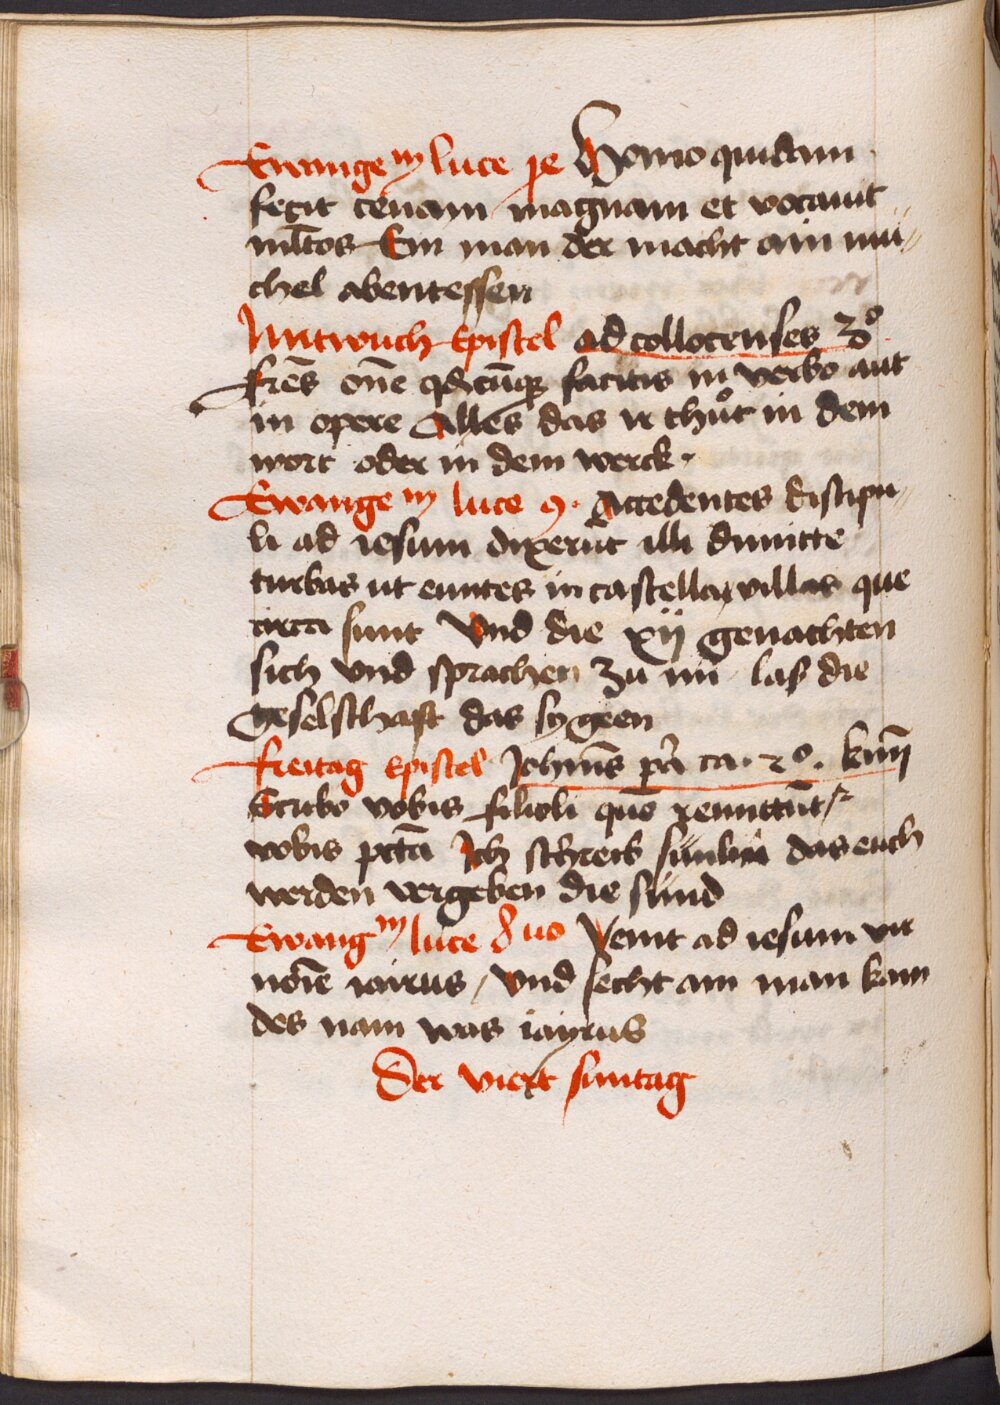 Ewange m luce xe Homo quidam
fecit cenam magnam et vocauit
mltos Ein man der macht ain mi
chel abentessen
Mitwuch Epistel ad collocenses 3o
frēs om̄e qdcūq facitis in verbo aut
in opere Alles das ir thůt in dem
wort oder in dem werck
Ewange m luce 9. Accedentes discipu
li ad iesum dixerūt illi dimitte
turbas ut euntes in castella villas que
circa sunt Vnd die xij genachten
sich vnd sprachen zu im las die
geselschaft das sy geen
freitag Epistel Johīns pa ca. 2o.
Scribo vobis filioli quō remittūtr
vobis pctā Ich schreib sünlin das euch
werden vergeben die sünd
Ewang m luce 8uo Venit ad iesum vir
nōīe iairus / Vnd secht ain man kam
des nam was iayrus
Der viert suntag